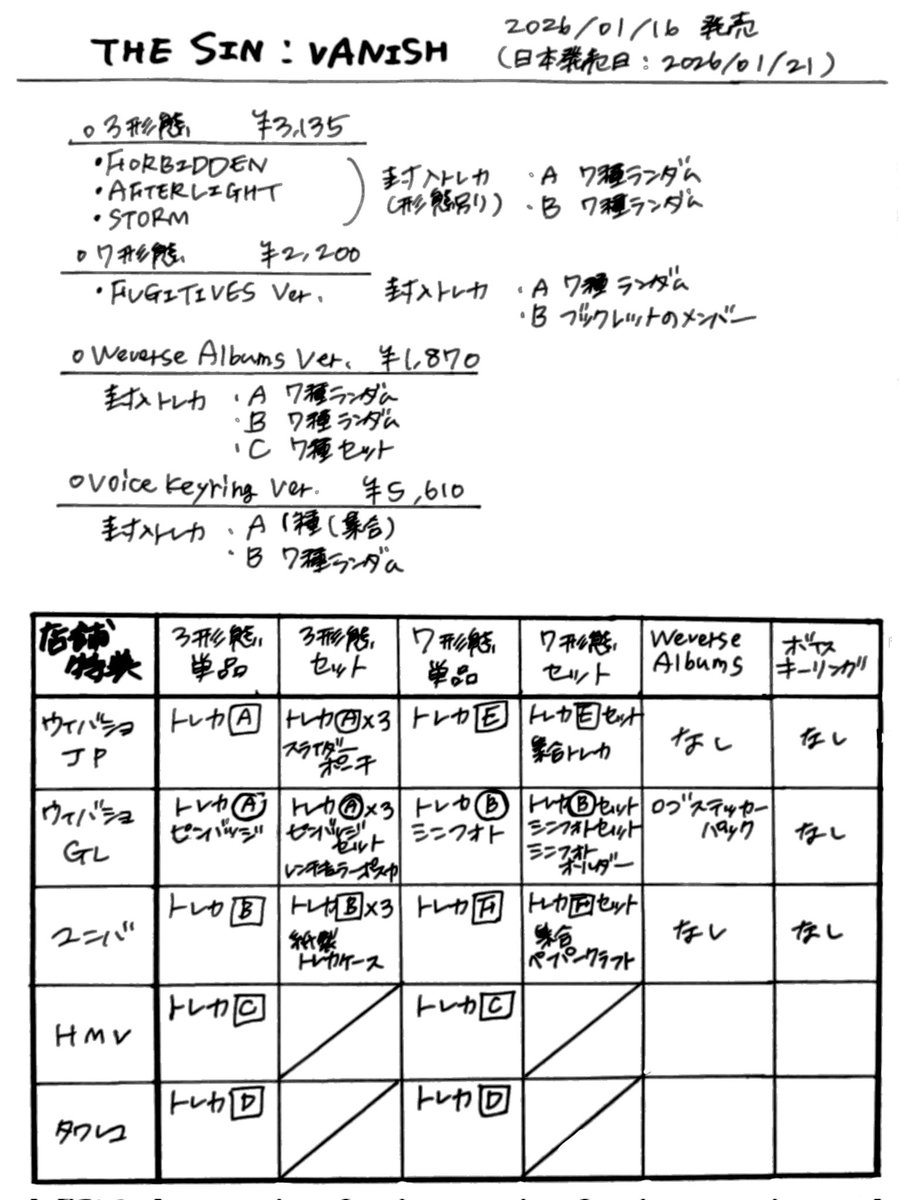 THE SIN : VANISH
2026/01/16 発売
(日本発売日：2026/01/21)
○3形態 ¥3,135
・FORBIDDEN
・AFTERLIGHT
・STORM
封入トレカ ・A 7種ランダム
(形態別り) ・B 7種ランダム
○7形態 ¥2,200
・FUGITIVES Ver. 封入トレカ ・A 7種ランダム
・B ブックレットのメンバー
○Weverse Albums Ver. ¥1,870
封入トレカ ・A 7種ランダム
・B 7種ランダム
・C 7種セット
○Voice Keyring Ver. ¥5,610
封入トレカ ・A 1種(集合)
・B 7種ランダム
店舗
特典
3形態
単品
3形態
セット
7形態
単品
7形態
セット
Weverse
Albums
ボイス
キーリング
ウィバショ
JP
トレカA
トレカA×3
スライダー
ポーチ
トレカE
トレカEセット
集合トレカ
なし
なし
ウィバショ
GL
トレカA
ピンバッジ
トレカA×3
ピンバッジ
セット
レンチキュラーポスカ
トレカB
ミニフォト
トレカBセット
ミニフォトセット
ミニフォト
ホールダー
ロゴステッカー
パック
なし
ユニバ
トレカB
トレカB×3
紙製
トレカケース
トレカF
トレカFセット
集合
ペーパークラフト
なし
なし
HMV
トレカC
トレカC
タワレコ
トレカD
トレカD